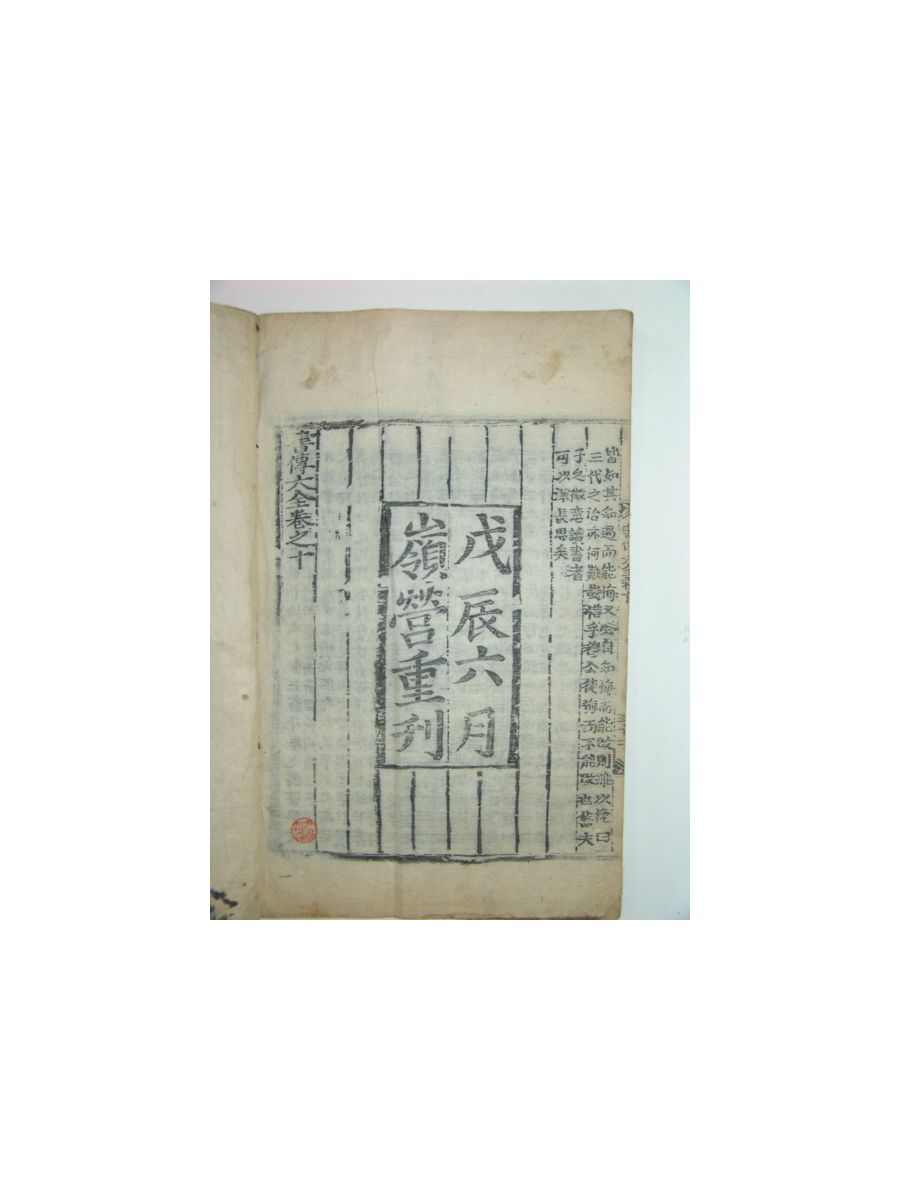 皆如其知過而能悔又皆自知悔而能改則雖以挽曰
三代之治亦何難哉惜乎穆公徒悔而不能改也然夫
子之微意讀書者
可以深長思矣
戊辰六月
嶺營重刊
書傳大全卷之十